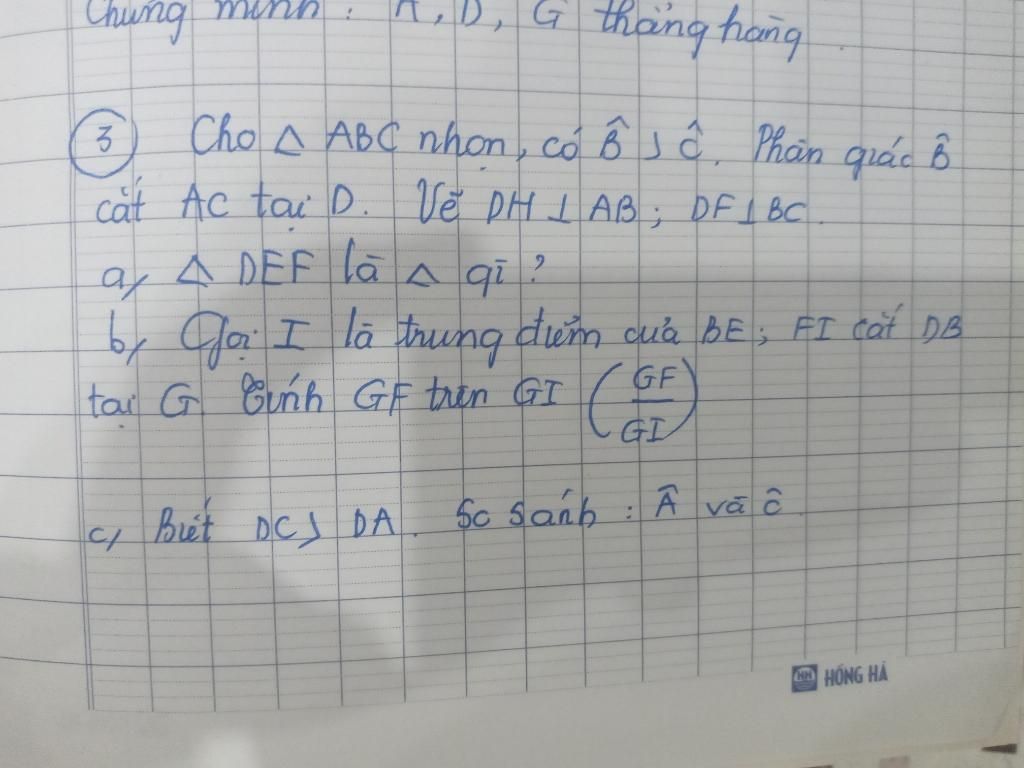 Chứng minh : A, D, G thẳng hàng.
3 Cho Δ ABC nhọn, có B̂ > Ĉ. Phân giác B̂
cắt AC tại D. Vẽ DH ⊥ AB ; DF ⊥ BC.
a, Δ DEF là Δ gì ?
b, Gọi I là trung điểm của BE ; FI cắt DB
tại G. Tính GF trên GI (GF/GI)
c, Biết DC > DA. So sánh : Â và Ĉ.
HH HỒNG HÀ